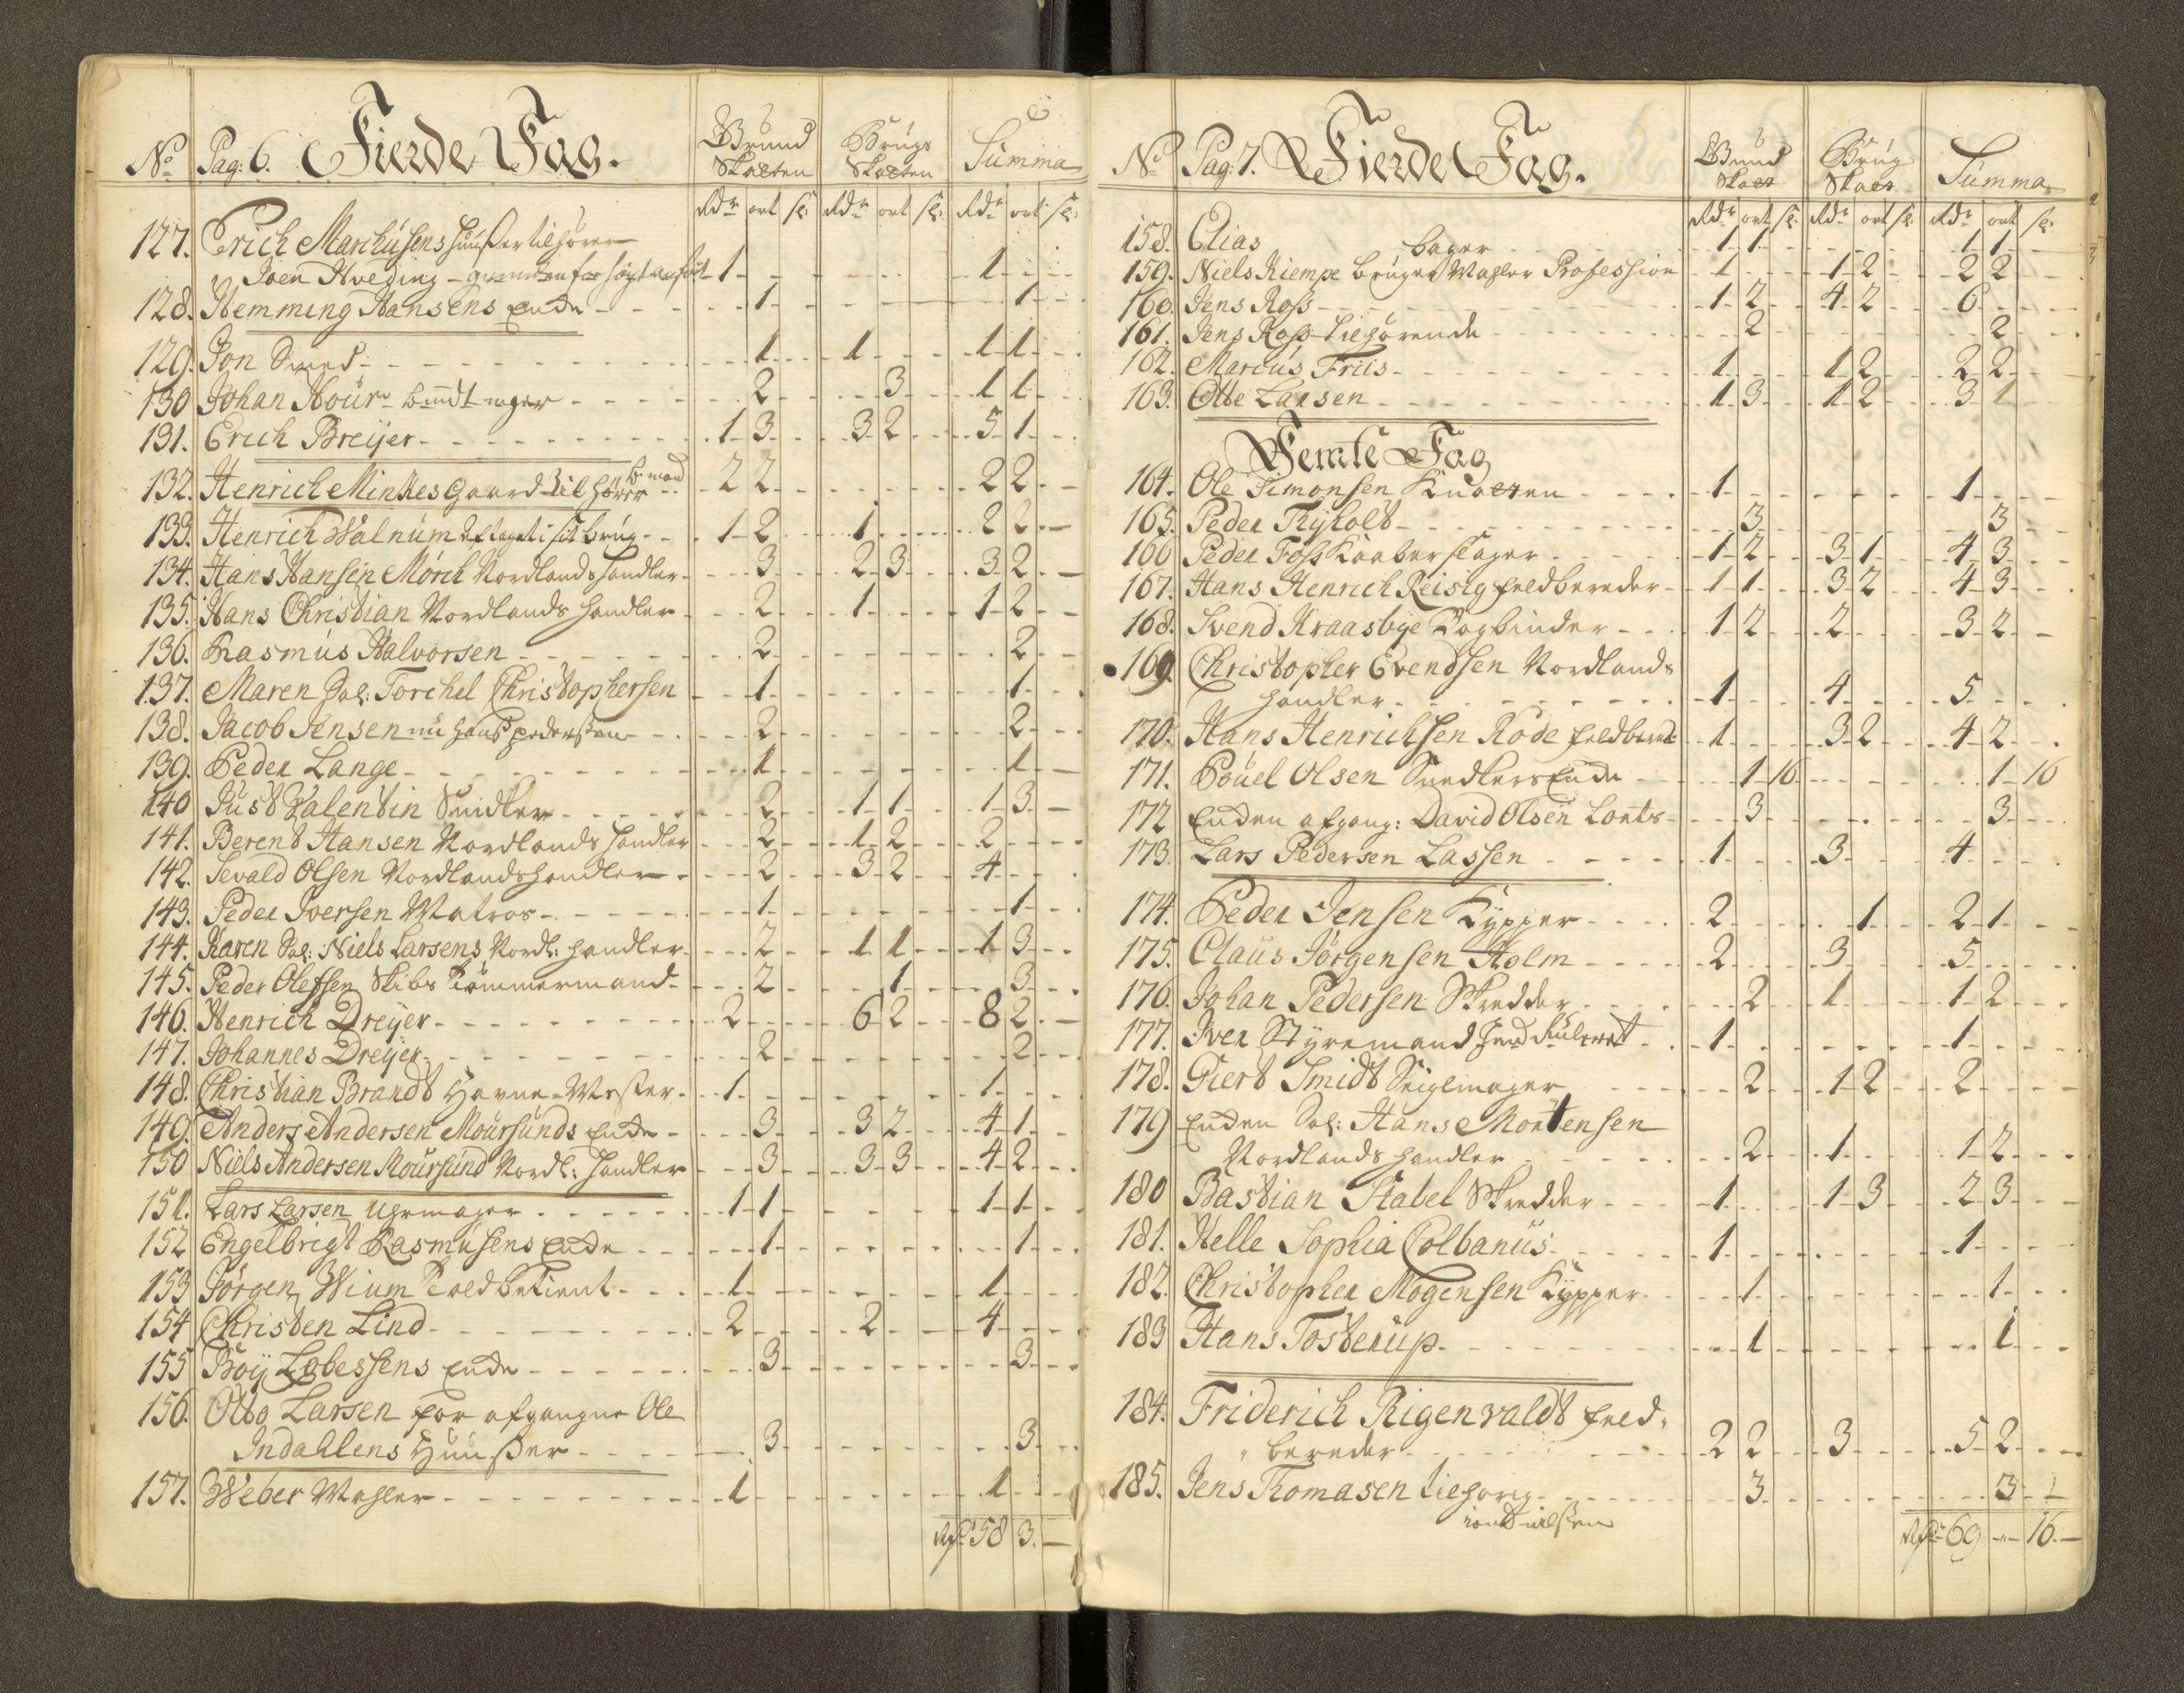 No Pag: 6. Fierde Fag. Grund Skatten Brugs Skatten Summa
Rdr ort sk: Rdr ort sk: Rdr ort sk:
127. Erich Marchusens tilhører
Joen Hveding 1 1
128. Hemming Hansens Enke 1 1
129. Jon Smed 1 1 1 1
130 Johan Hour bundtmager 2 3 1 1
131. Erich Breijer 1 3 3 2 5 1
132. Henrich Minkes Gaard Tilhører 2 2 2 2
133. Henrich Walnum i sit brug 1 2 1 2 2
134. Hans Hansen Mörch Nordlands handler 3 2 3 3 2
135. Hans Christian Nordlands handler 2 1 1 2
136. Rasmus Halvorsen 2 2
137. Maren Sal: Torchel Christophersen 1 1
138. Jacob Jensen nu Hans Pedersen 2 2
139. Peder Lange 1 1
140 Just Valentin Snidker 2 1 1 1 3
141. Berent Hansen Nordlands handler 2 1 2 2
142. Sevald Olsen Nordlandshandler 2 3 2 4
143. Peder Iversen Matros 1 1
144. Karen Sal: Niels Larsens Nordl: handler 2 1 1 1 3
145. Peder Olessen Skibs Tømmermand 2 1 3
146. Henrich Dreyer 2 6 2 8 2
147. Johannes Dreyer 2 2
148. Christian Brandt Havne-Mester 1 1
149. Anders Andersen Moursunds Enke 3 3 2 4 1
150 Niels Andersen Moursund Nordl: handler 3 3 3 4 2
151. Lars Larsen Uhrmager 1 1 1 1
152 Engelbrigt Rasmusens Enke 1 1
153 Jörgen Wium Toldbetient 1 1
154 Christen Lind 2 2 4
155 Boij Lobessens Enke 3 3
156. Otto Larsen for afgangne Ole
Indahlens Huuser 3 3
157. Weber Mahler 1 1
Rdr 58 3.
No Pag: 7. Fierde Fag. Grund Skatt Brug Skatt Summa
Rdr ort sk: Rdr ort sk: Rdr ort sk:
158. Elias bager 1 1 1 1
159. Niels Kiempe bruger Mahler Profession 1 1 2 2 2
160. Jens Ross 1 2 4 2 6
161. Jens Ross tilhørende 2 2
162. Marcus Friis 1 1 2 2 2
163. Otte Larsen 1 3 1 2 3 1
Femte Fag
164. Ole Simonsen 1 1
165. Peder Tryholt 3 3
166 Peder Foss Kaaberslager 1 2 3 1 4 3
167. Hans Henrich Reisig feldbereder 1 1 3 2 4 3
168. Svend Kraasbye Bogbinder 1 2 2 3 2
169. Christopher Evendsen Nordlands
handler 1 4 5
170. Hans Henrichsen Rode feldbered 1 3 2 4 2
171. Pouel Olsen Snedkers Enke 1 16 1 16
172 Enken afgang: David Olsen Lonts 3 3
173. Lars Pedersen Lassen 1 3 4
174. Peder Jensen Kypper 2 1 2 1
175. Claus Jörgensen Holm 2 3 5
176. Johan Pedersen Skredder 2 1 1 2
177. Iver Styremand 1 1
178. Giert Smidt Seiglmager 2 1 2 2
179 Enken Sal: Hans Mortensen
Nordlands handler 2 1 1 2
180 Bastian Stabel Skredder 1 1 3 2 3
181. Helle Sophia Colbanus 1 1
182. Christopher Mogensen Kypper 1 1
183 Hans Tosterup 1 1
184. Friderich Rigenvaldt feld-
bereder 2 2 3 5 2
185. Jens Thomasen tilhørig 3 3
Rdr 69 16.